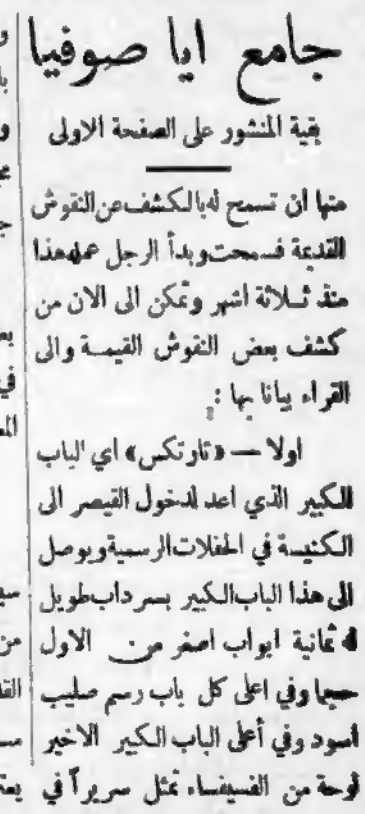 جامع ايا صوفيا
بقية المنشور على الصفحة الاولى
منها ان تسمح له بالكشف عن النقوش
القديمة فسمحت وبدأ الرجل عمله هذا
منذ ثلاثة اشهر وتمكن الى الان من
كشف بعض النقوش القيمة والى
القراء بيانا بها :
اولا — «تارتكس» اي الباب
الكبير الذي اعد لدخول القيصر الى
الكنيسة في الحفلات الرسمية ويوصل
الى هذا الباب الكبير بسرداب طويل
له ثمانية ابواب اصغر من الاول
حجما وفي اعلى كل باب رسم صليب
اسود وفي أعلى الباب الكبير الاخير
لوحة من الفسيفساء تمثل سريراً في